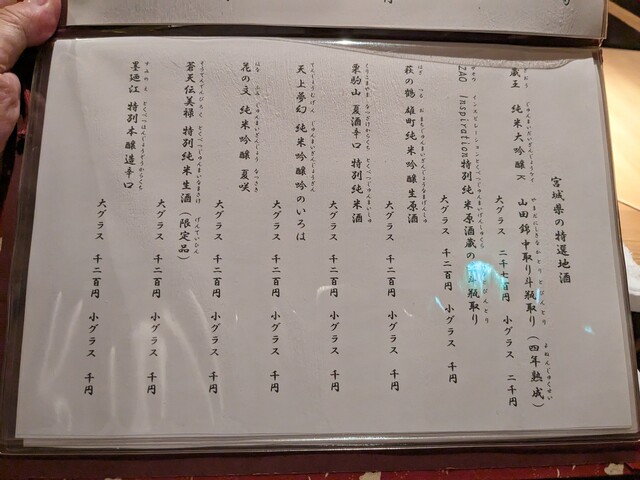 宮城県の特選地酒
蔵王 純米大吟醸 K
山田錦中取り斗瓶取り（四年熟成）
大グラス 二千七百円 小グラス 二千円
ZAO Inspiration特別純米原酒蔵の斗瓶取り
大グラス 千二百円 小グラス 千円
萩の鶴 雄町純米吟醸生原酒
大グラス 千二百円 小グラス 千円
栗駒山 夏酒辛口 特別純米酒
大グラス 千二百円 小グラス 千円
天上夢幻 純米吟醸吟のいろは
大グラス 千二百円 小グラス 千円
花の文 純米吟醸 夏咲
大グラス 千二百円 小グラス 千円
蒼天伝美禄 特別純米生酒（限定品）
大グラス 千二百円 小グラス 千円
墨廼江 特別本醸造辛口
大グラス 千二百円 小グラス 千円